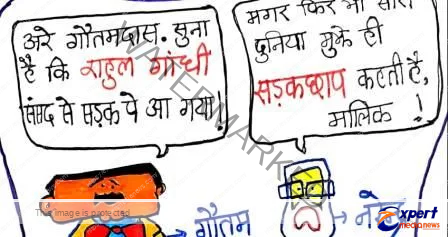 अरे गौतमदास. सुना
है कि राहुल गांधी
संसद से सड़क पे आ गया!
मगर फिर भी सारी
दुनिया मुझे ही
सड़कछाप कहती है,
मालिक !
WATERMARK
This image is protected
गौतम
Expert
media news